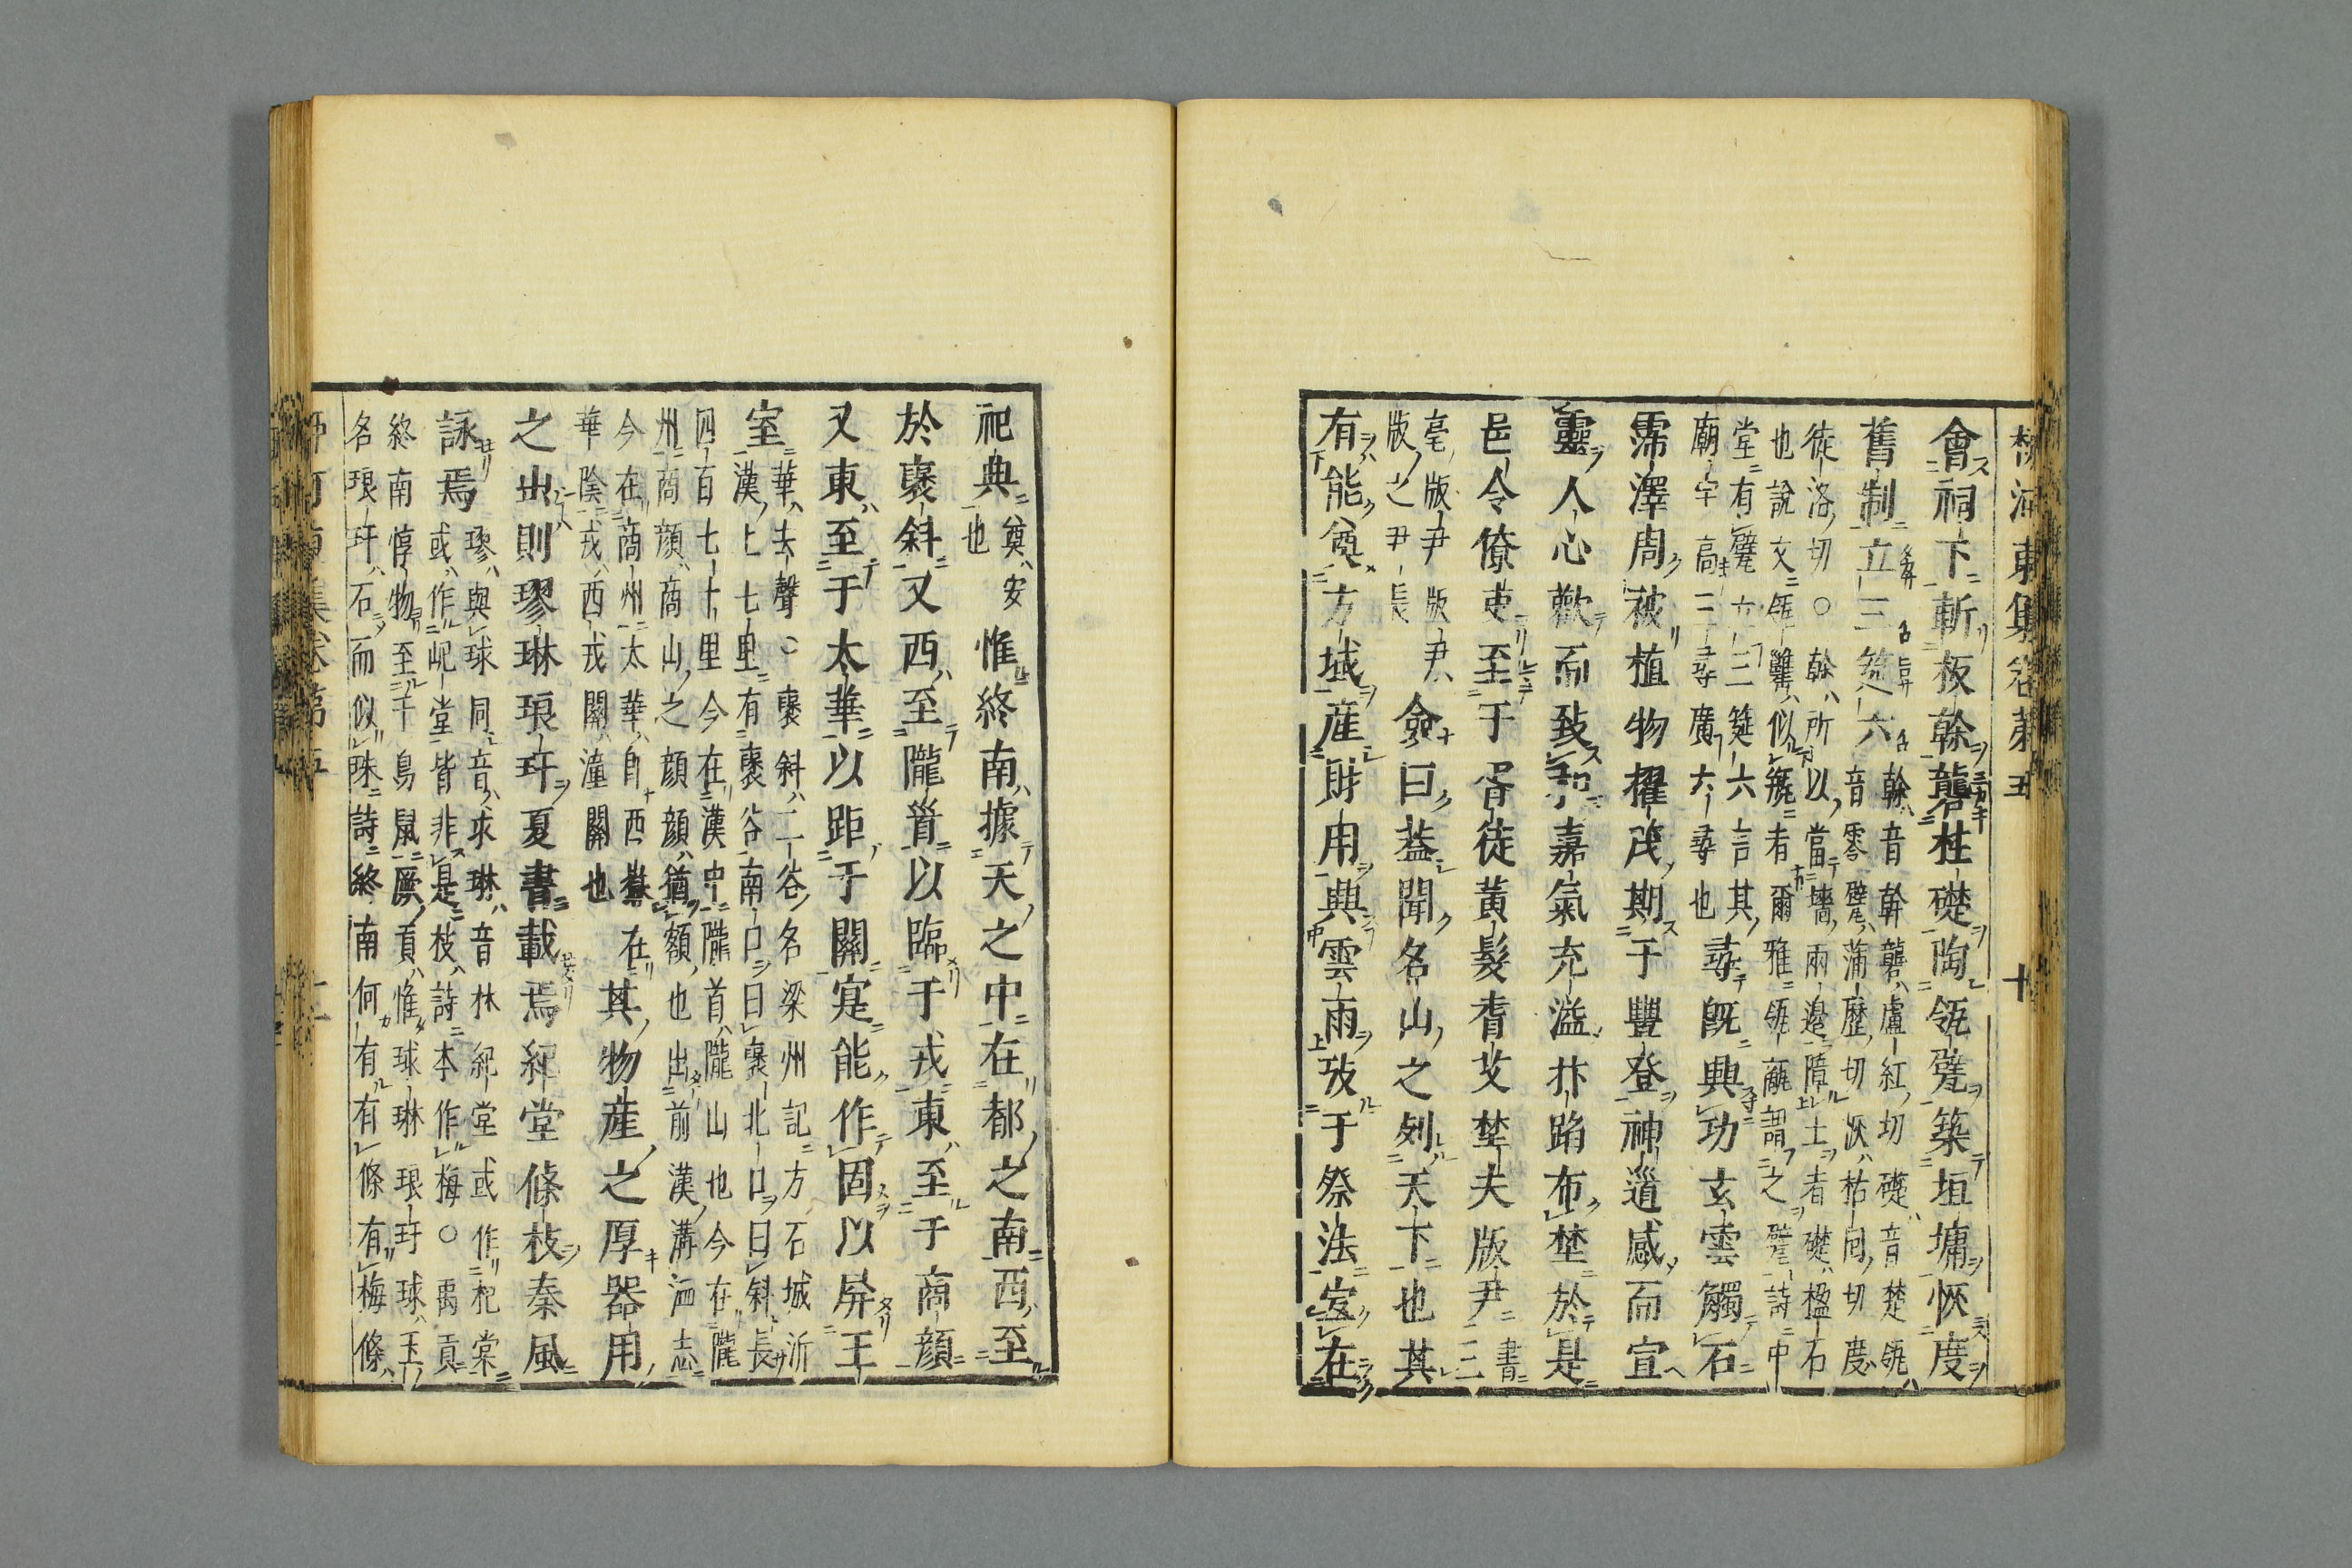 會祠下斬板榦礱柱礎陶瓴甓築垣墉恢度
舊制立三筵六
榦音幹礱盧紅切礎音楚瓴
音零甓蒲歷切恢枯回切度
徒洛切○榦所以當墻兩邊障土者礎楹石
也說文瓴甕似瓶者爾雅瓴甋謂之甓詩中
堂有甓立三筵六言其
廟宇高三尋廣六尋也
尋旣興功玄雲觸石
霈澤周被植物擢茂期于豐登神道感而宣
靈人心歡而致和嘉氣充溢抃蹈布埜於是
邑令僚吏至于胥徒黃髮耆艾埜夫版尹
書三
亳版尹版尹
版之尹長
僉曰蓋聞名山之列天下也其
有能奠方域產財用興雲雨攷于祭法宐在
祀典
奠安
也
惟終南據天之中在都之南西至
於褒斜又西至隴首以臨于戎東至于商顏
又東至于太華以距于關寔能作固以屏王
室
華去聲○褒斜二谷名梁州記方石城沂
漢上七里有褒谷南口曰褒北口曰斜長
四百七十里今在漢中隴首隴山也今在隴
州商顏商山之顏顏猶額也出前漢溝洫志
今在商州太華自西嶽在
華陰戎西戎關潼關也
其物產之厚器用
之出則璆琳琅玕夏書載焉紀堂條枚秦風
詠焉
璆與球同音求琳音林紀堂或作杞棠
或作屺堂皆非是枚詩本作梅○禹貢
終南惇物至于鳥鼠厥貢惟球琳琅玕球玉
名琅玕石而似珠詩終南何有有條有梅條